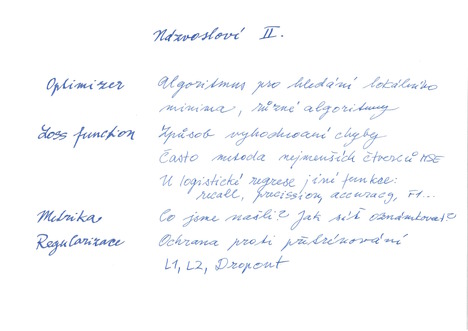 Názvosloví II.
Optimizer Algoritmus pro hledání lokálního
minima, různé algoritmy
Loss function Způsob vyhodnocaní chyby
Často metoda nejmenších čtverců MSE
U logistické regrese jiné funkce:
recall, precission, accuracy, F1...
Metrika Co jsme našli? Jak síť oznámkovat?
Regularizace Ochrana proti přetrénování
L1, L2, Dropout